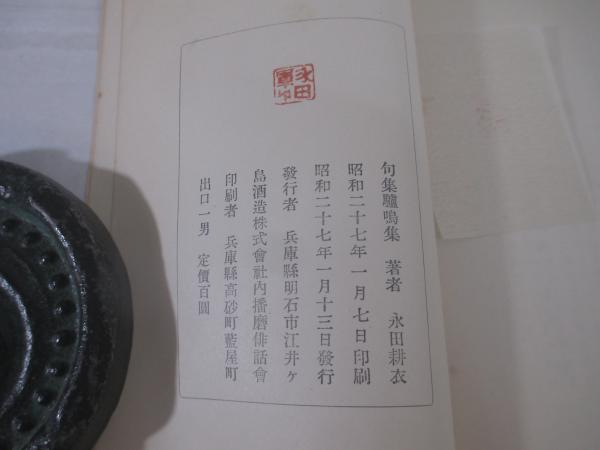 句集驢鳴集 著者 永田耕衣
昭和二十七年一月七日印刷
昭和二十七年一月十三日發行
發行者 兵庫縣明石市江井ヶ
島酒造株式會社内播磨俳話會
印刷者 兵庫縣高砂町藍屋町
出口一男 定價百圓
永田